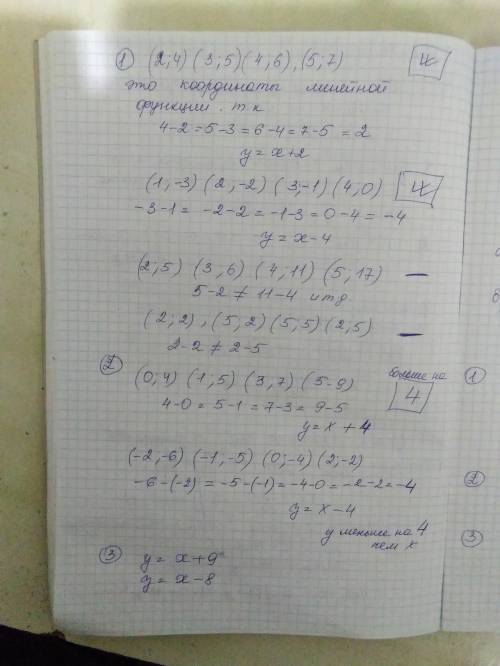 ① (2;4) (3;5) (4,6), (5;7) 4
это координаты линейной
функции. т.к
4-2=5-3=6-4=7-5=2
y=x+2
(1,-3) (2,-2) (3,-1) (4,0) 4
-3-1= -2-2=-1-3=0-4=-4
y=x-4
(2,5) (3,6) (4,11) (5,17) —
5-2≠11-4 итд
(2;2), (5,2) (5,5) (2,5) —
2-2≠2-5
② (0;4) (1,5) (3,7) (5-9) больше на 4
4-0=5-1=7-3=9-5
y=x+4
(-2,-6) (-1,-5) (0;-4) (2;-2)
-6-(-2)=-5-(-1)=-4-0=-2-2=-4
y=x-4
y меньше на 4
чем x
③ y=x+9
y=x-8
①
②
③